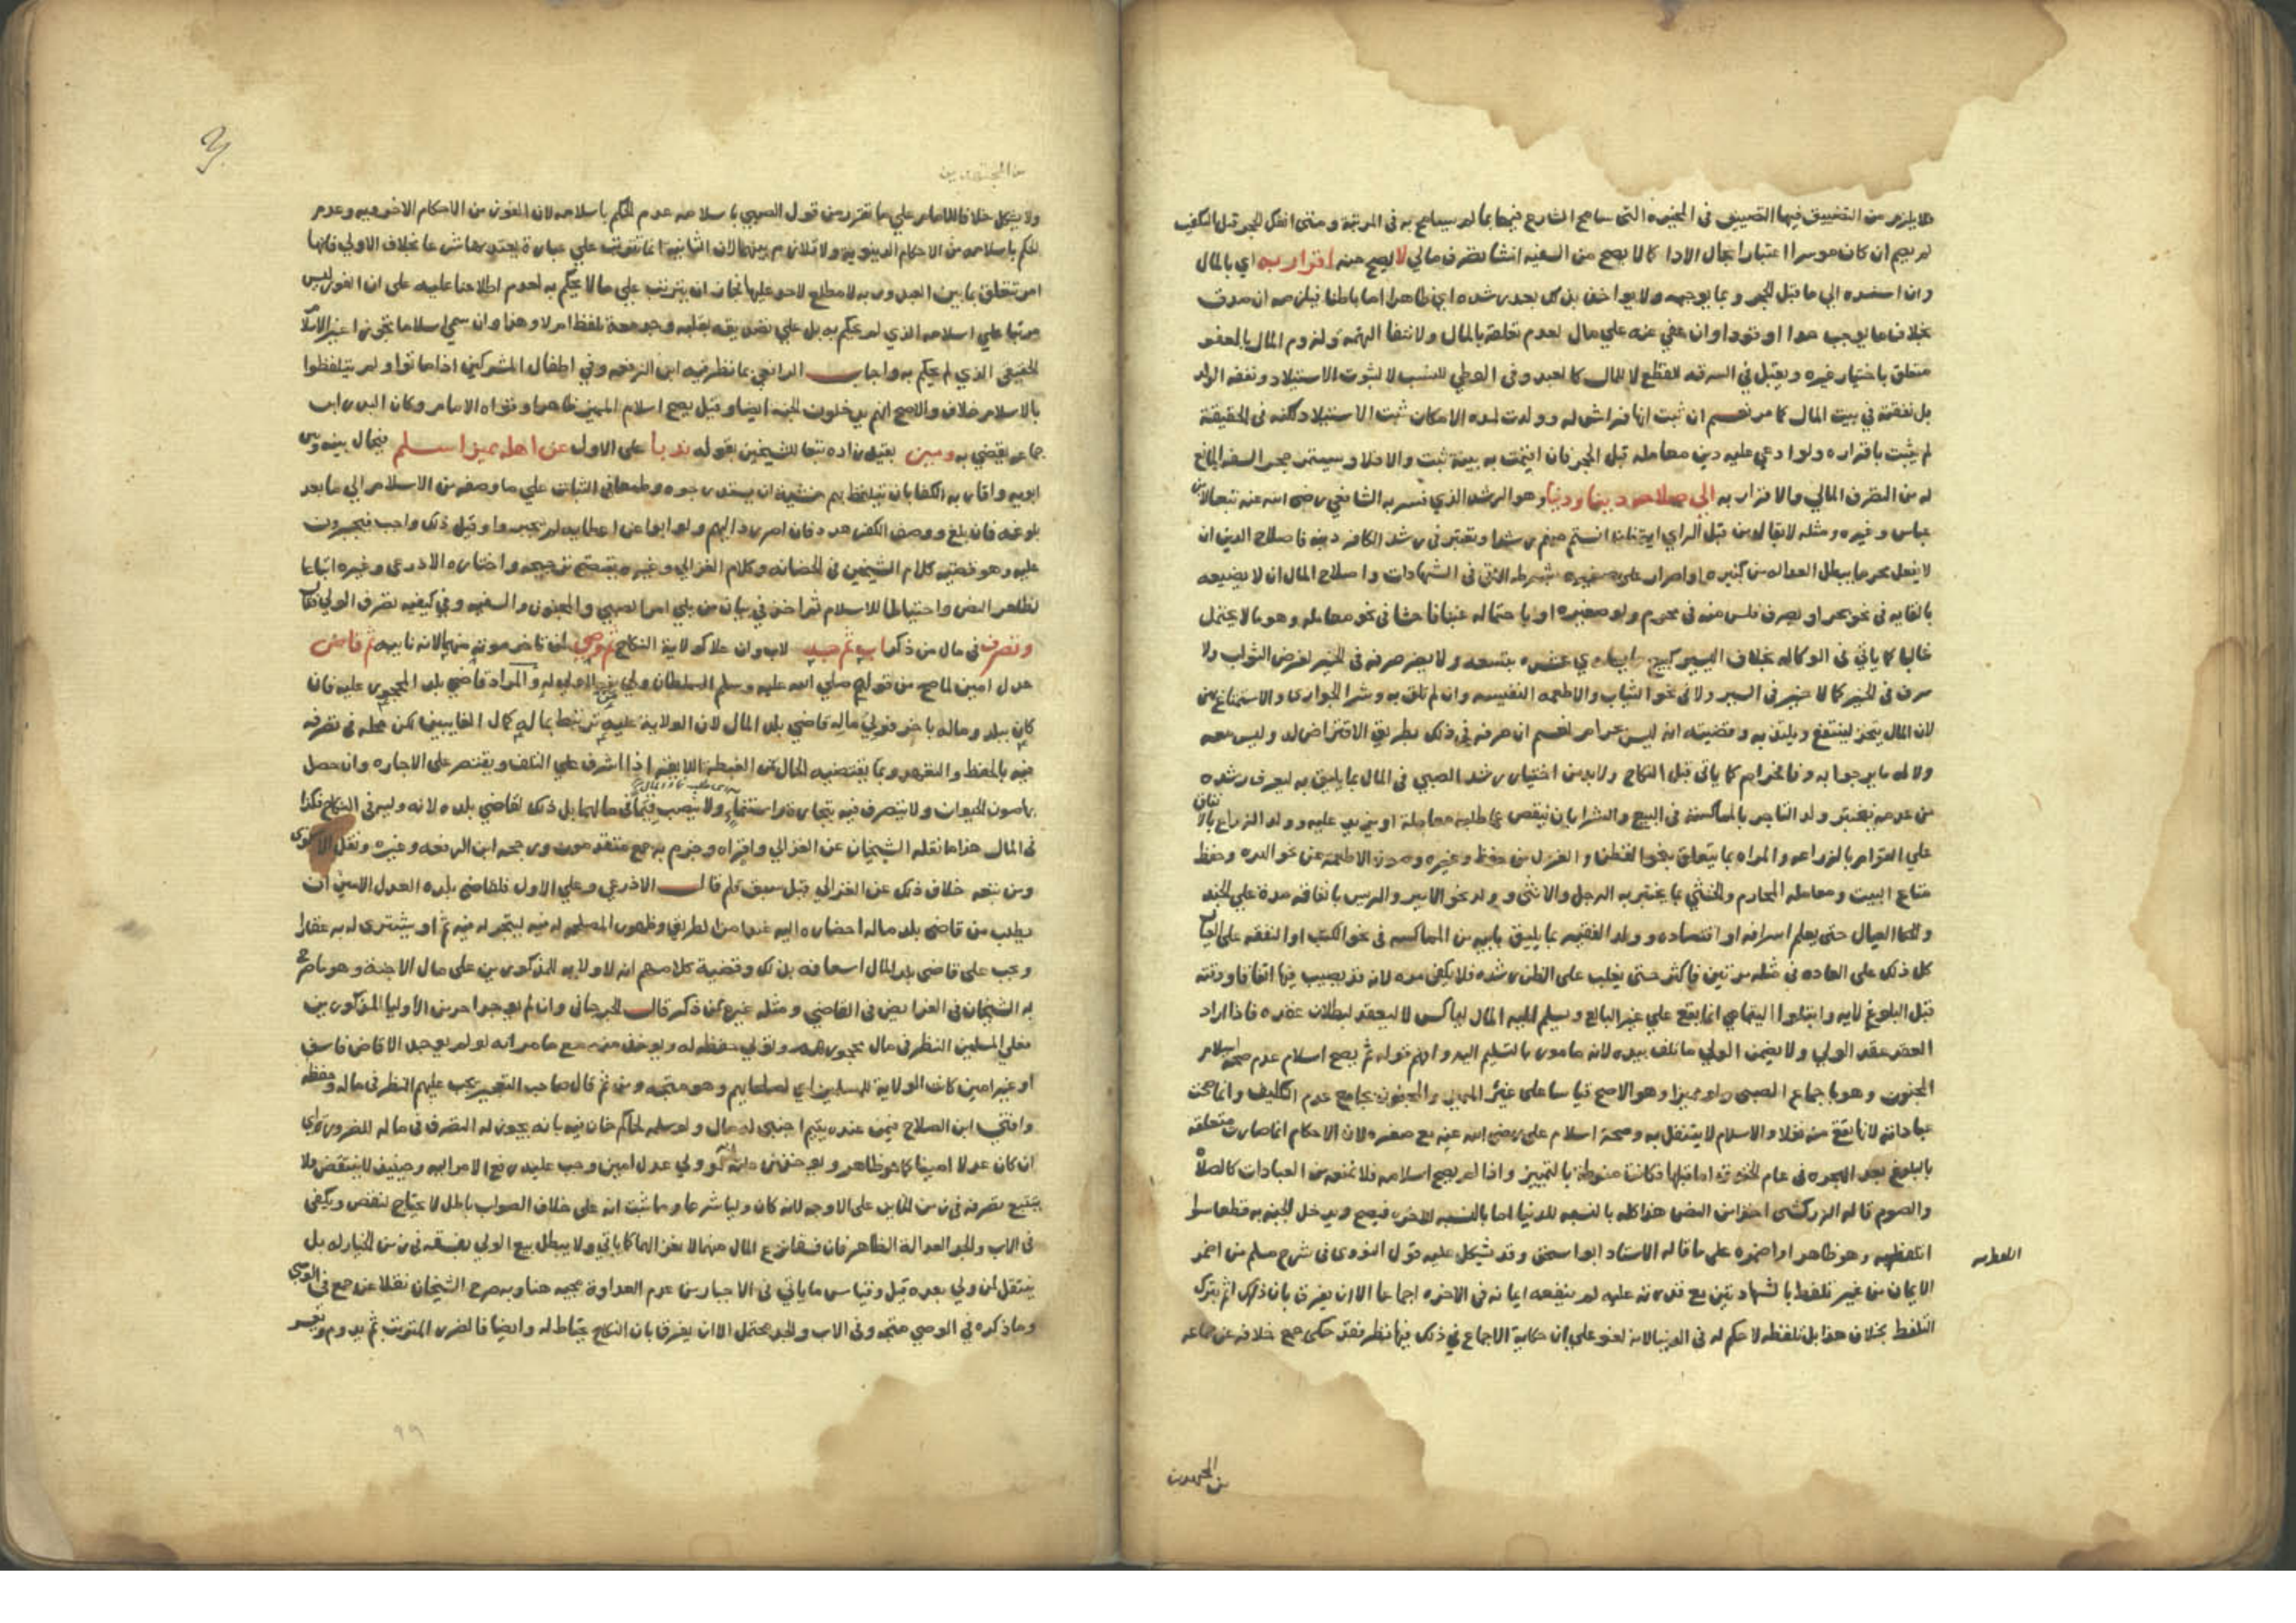 فلا يلزم من التضييق فيها التضييق في المخيرة التي سامح الشارع فيها بما لم يسامح به في المرتبة ومتى انفك الحجر قبل التكفير
لم يصم ان كان موسرا اعتبارا بحال الاداء كالا يصح من السفيه انشا تصرف مالي لا يصح منه اقرار به اي بالمال
وان اسنده الي ما قبل الحجر وبما يوجبه ولا يواخذ به بعد رشده اي ظاهرا اما باطنا فيلزمه ان صدق
بخلاف ما يوجب حدا او قودا وان عفي عنه علي مال لعدم تعلقه بالمال ولانتفا التهمة ولزوم المال بالعفو
متعلق باختيار غيره ويقبل في السرقة للقطع لا المال كالعبد وفي الوطي للنسب لا لثبوت الاستيلاد ونفقه الولد
بل نفقته في بيت المال كما مر نعم ان ثبت انها فراش له وولدت لمدة الامكان ثبت الاستيلاد لكنه في الحقيقة
لم يثبت باقراره ولو ادعي عليه دين معاملة قبل الحجر فان اقيمت به بينة ثبت والا فلا ويستمر حجر السفه المانع
له من التصرف المالي والاقرار به الي صلاحه دينا ودنيا وهو الرشد الذي فسر به الشافعي رضي الله عنه تبعا لابن
عباس وغيره ومثله لا يقال من قبل الراي اية فان انستم منهم رشدا ويعتبر في رشد الكافر دينه فاصلاح الدين ان
لا يفعل محرما يبطل العدالة من كبيرة او اصرار على صغيره بشرطه الاتي في الشهادات واصلاح المال ان لا يضيعه
بالقايه في نحو بحر او بصرف فلس منه في محرم ولو صغيره او باحتماله غبنا فاحشا في نحو معاملة وهو ما لا يحتمل
غالبا كما ياتي في الوكاله بخلاف اليسير كبيع ما يساوي عشره بتسعه ولا يضر صرفه في الخير لغرض الثواب ولا
سرف في الخير كما لا خير في السرف ولا في نحو الثياب والاطعمه النفيسه وان لم تلق به وشرا الجواري والاستمتاع بهن
لان المال يتخذ لينتفع ويلتذ به وقضيته انه ليس بحرام نعم ان صرفه في ذلك بطريق الاقتراض له وليس معه
ولا له ما يرجوا به وفا حرام كما ياتي قبل النكاح ولا بد من اختبار رشد الصبي في المال بما يليق به ليعرف رشده
من عدمه فيختبر ولد التاجر بالمماكسة في البيع والشرا بان ينقص عما طلبه معاملة او يزيد عليه وولد الزراع بالانفاق
علي القوام بالزراعه والمراه بما يتعلق بنحو القطن والغزل من حفظ وغيره وصون الاطعمه عن نحو الهره وحفظ
متاع البيت ومعاملة المحارم والخنثي بما يختبر به الرجل والانثي وولد نحو الامير والرييس بانفاقه مدة علي الجند
والعيال حتى يعلم اسرافه او اقتصاده وولد الفقيه بما يليق بابيه من المماكسه في نحو الكتب او النفقه على العيال
كل ذلك على العاده في مثله مرتين فاكثر حتى يغلب على الظن رشده فلا يكفي مره لانه قد يصيب فيها اتفاقا ووقته
قبل البلوغ لاية وابتلوا اليتامي انما يقع علي غير البالغ ويسلم اليه المال ليماكس لا ليعقد لبطلان عقده فاذا اراد
العقد عقد الولي ولا يضمن الولي ما تلف بيده لانه مامور بالتسليم اليه وافهم قوله ثم يصح اسلام عدم صحة اسلام
المجنون وهو باجماع الصبي ولو مميزا وهو الاصح قياسا على غير المميز والمجنون بجامع عدم التكليف وانما صحت
عباداته لانها تقع منه نفلا والاسلام لا يتنفل به وصحة اسلام على رضي الله عنه مع صغره لان الاحكام انما صارت متعلقة
بالبلوغ بعد الهجره في عام الخندق اما قبلها فكانت منوطة بالتمييز واذا لم يصح اسلامه فلا نمنعه من العبادات كالصلاة
والصوم قاله الزركشي اخذا من النص هذا كله بالنسبه للدنيا اما بالنسبه للاخره فيصح ويدخل الجنه به قطعا سوا
اتلفظ به وهو ظاهر او اضمره على ما قاله الاستاذ ابو اسحق وقد يشكل عليه قول النووي في شرح مسلم من اضمر
اتلفظ به
الايمان من غير تلفظ بالشهادتين مع قدرته عليه لم ينفعه ايمانه في الاخره اجماعا الا ان يفرق بان ذلك اثم بترك
التلفظ بخلاف هذا بل تلفظه لا حكم له في الدنيا لانه لغو علي ان حكاية الاجماع في ذلك فيها نظر فقد حكى جمع خلافه عن جماعه
من المجتهدين
من المجتهدين
ولا يشكل خلافا للامام علي ما تقرر من قول الصبي باسلامه عدم الحكم باسلامه لان الفوز من الاحكام الاخرويه وعدم
الحكم باسلامه من الاحكام الدنيويه ولا تلازم بينهما لان الثانيه انما تترتب علي عبارة يعتد بها شرعا بخلاف الاولي فانها
امر يتعلق بما بين العبد وربه لا مطلع لاحد عليها فجاز ان يترتب علي ما لا يحكم به لعدم اطلاعنا عليه على ان الفوز ليس
مرتبا علي اسلامه الذي لم يحكم به بل علي تصديقه بقلبه وجد معه تلفظ ام لا وهذا وان سمي اسلاما تجوزا غير الاسلام
الحقيقي الذي لم يحكم به واجاب الرافعي بما نظر فيه ابن الرفعه وفي اطفال المشركين اذا ماتوا ولم يتلفظوا
بالاسلام خلاف والاصح انهم يدخلون الجنه ايضا وقيل يصح اسلام المميز ظاهرا وقواه الامام وكان البدر ابن
جماعه يقضي به ومين بقيد زاده تبعا للشيخين بقوله ندبا على الاول عن اهله مميز اسلم فيحال بينه وبين
ابويه واقاربه الكفار بان يتلطف بهم خشية ان يستدرجوه وطمعا في الثبات علي ما وصفه من الاسلام الي ما بعد
بلوغه فان بلغ ووصف الكفر هدد فان اصر رد اليهم ولو ابوا عن اعطايه لم يجبروا وقيل ذلك واجب فيجبرون
عليه وهو قضيه كلام الشيخين في الحضانه وكلام الغزالي وغيره يقتضي ترجيحه واختاره الاذرعي وغيره اتباعا
لظاهر النص واحتياطا للاسلام ثم اخذ في بيان من يلي امر الصبي والمجنون والسفيه وفي كيفيه تصرف الولي فقال
وتصرف في مال من ذكر اب ثم جد لاب وان علا كولاية النكاح ثم وصي لمن تاخر موته منهما لانه نايبه ثم قاض
عدل امين لما صح من قوله صلي الله عليه وسلم السلطان ولي من لا ولي له والمراد قاضي بلد المحجور عليه فان
كان ببلد وماله باخر فولي ماله قاضي بلد المال لان الولاية عليه ترتبط بماله كمال الغايبين لكن محله في تصرفه
فيه بالحفظ والتعهد وبما يقتضيه الحال من الغبطة اللايقه اذا اشرف علي التلف ويقتصر على الاجاره وان حصل
بها صون الحيوان ولا يتصرف فيه بتجارة واستنماء ولا ينصب قيما في مالهما بل ذلك لقاضي بلده لانه وليه في النكاح فكذا
في المال هذا ما نقله الشيخان عن الغزالي واقراه وجزم به جمع متقدمون ورجحه ابن الرفعه وغيره ونقل الاسنوي
ومن تبعه خلاف ذلك عن الغزالي قيل سبق قلم قال الاذرعي وعلي الاول فلقاضي بلده العدل الامين ان
يطلب من قاضي بلد ماله احضاره اليه عند امن الطريق وظهور المصلحه له فيه ليتجر له فيه ثم او يشترى له به عقارا
ويجب على قاضي بلد المال اسعافه بذلك وقضية كلامهم انه لا ولاية للمذكورين على مال الاجنة وهو ما صرح
به الشيخان في الفرايض في القاضي ومثله غيره ممن ذكر قال الجرجاني وان لم يوجد احد من الاوليا المذكورين
فعلي المسلمين النظر في مال محجورهم وتولي حفظه له ويوخذ منه مع ما مر انه لو لم يوجد الا قاض فاسق
او غير امين كانت الولاية للمسلمين اي لصلحايهم وهو متجه ومن ثم قال صاحب التعجيز يجب عليهم النظر في ماله وحفظه
وافتى ابن الصلاح فيمن عنده يتيم اجنبي له مال ولو سلمه لحاكم خان فيه بانه يجوز له التصرف في ماله للضرورة اي
ان كان عدلا امينا كما هو ظاهر ويوخذ من علته انه لو ولي عدل امين وجب عليه رفع الامر اليه وحينيذ لا ينتقض ولا
يتتبع تصرفه في زمن الخاين على الاوجه لانه كان وليا شرعا وما ثبت انه على خلاف الصواب باطل لا يحتاج لنقض ويكفي
في الاب والجد العدالة الظاهره فان فسقا نزع المال منهما لا بغير الهما كما ياتي ولا يبطل بيع الولي بفسقه في زمن الخيار له بل
ينتقل لمن ولي بعده قبل وقياس ما ياتي في الاجبار من عدم العداوة مجيه هنا وبه صرح الشيخان نقلا عن جمع في الوصي
وما ذكره في الوصي متجه وفي الاب والجد محتمل الا ان يفرق بان النكاح يحتاط له وايضا فالضرر المترتب ثم يدوم ويتعسر
٩٩